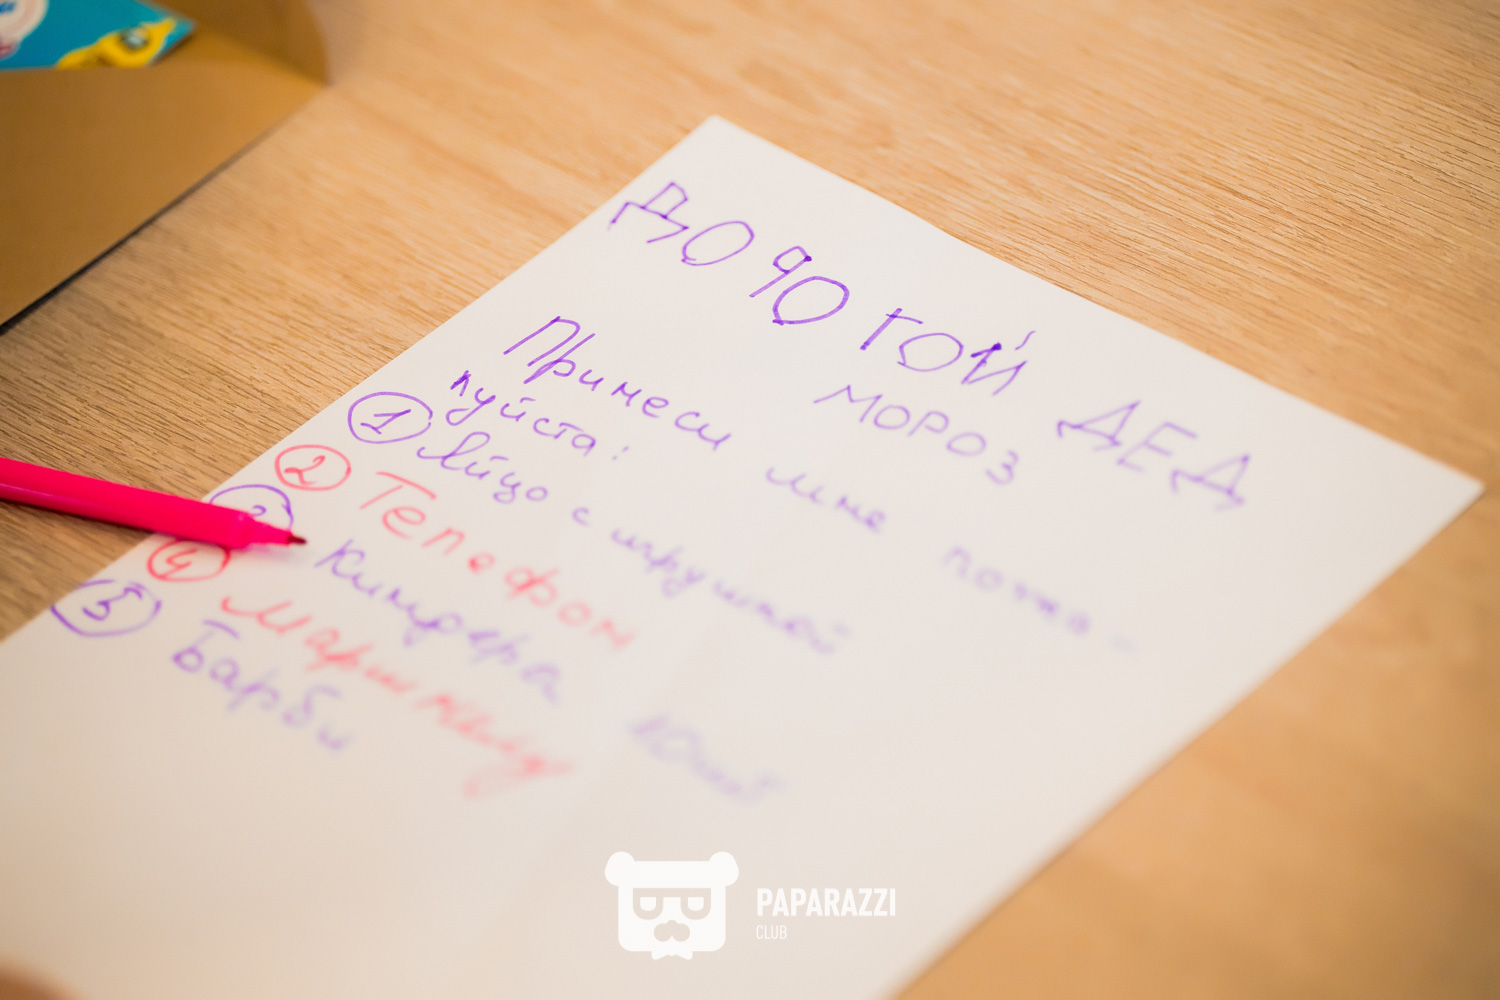 ДОРОГОЙ ДЕД
МОРОЗ
Принеси мне пожа-
луйста:
1 Яйцо с игрушкой
2 Телефон
3 Киндера
4 Маршмеллу
5 Барби
PAPARAZZI
CLUB